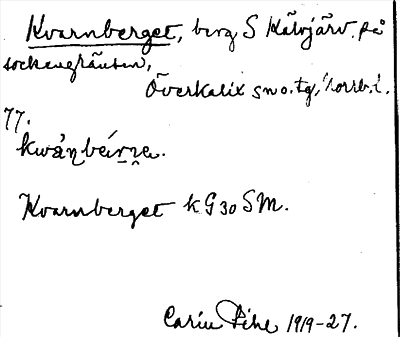 Kvarnberget, berg S Kälvjärv på
sockengränsen,
Överkalix sn o. tg, Norrb. l.
77.
Kvarnberget k G 30 SM.
Carin Pihl 1919-27.